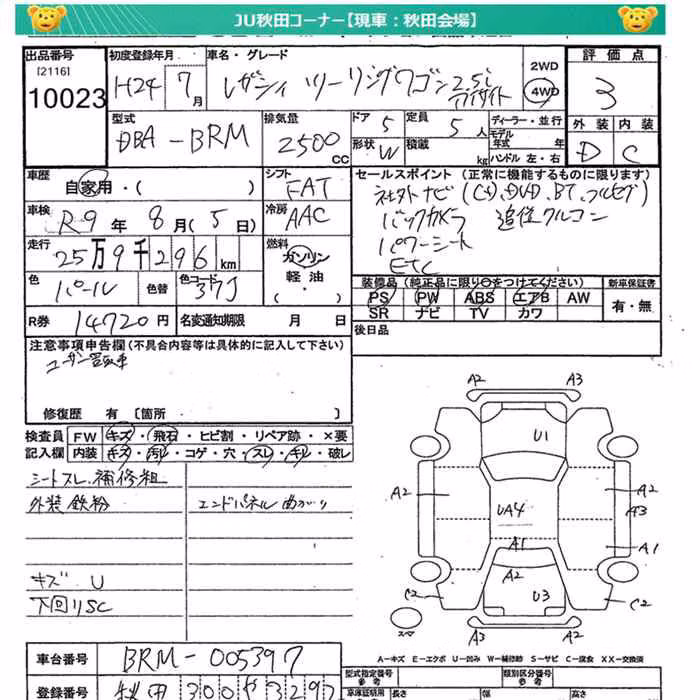 JU秋田コーナー【現車：秋田会場】
出品番号
[2116]
10023
初度登録年月
H24 7月
車名・グレード
レガシィ ツーリングワゴン 2.5i
アイサイト
2WD
4WD
評価点
3
外装 内装
D C
型式
DBA-BRM
排気量
2500
CC
ドア 5
定員 5人
形状 W
積載 kg
ディーラー・並行
モデル
年式 年
ハンドル 左・右
車歴
自家用・( )
シフト
FAT
セールスポイント (正常に機能するものに限ります)
社外ナビ (CD,DVD,BT,フルセグ)
バックカメラ 追従クルコン
パワーシート
ETC
車検
R9年8月(5日)
冷房
AAC
走行
25万9千296km
燃料
ガソリン
軽油
( ・ )
色
パール
色替
色コード
37J
装備品 (純正品に限り○をつけてください)
PS PW ABS エアB AW
SR ナビ TV カワ
新車保証書
有・無
R券 14720円
名変通知期限 月 日
後日品
注意事項申告欄(不具合内容等は具体的に記入して下さい)
ユーザー買取車
修復歴 有 〔箇所 〕
検査員
記入欄
FW キズ・飛石・ヒビ割・リペア跡・×要
内装 キズ・汚れ・コゲ・穴・スレ・キレ・破レ
シートスレ、補修組
外装鉄粉
エンドパネル曲がり
キズ U
下回りSC
A2 A3
U1
A2
UA4
A2
A3
A1
A1
A2
C2
U3
C2
スペ
A3 A2
A-キズ E-エクボ U-凹み W-補修跡 S-サビ C-腐食 XX-交換済
車台番号
BRM-005397
登録番号
秋田300や3297
型式指定番号
参考
類別区分番号
参考
車庫証明用
長さ 幅 高さ